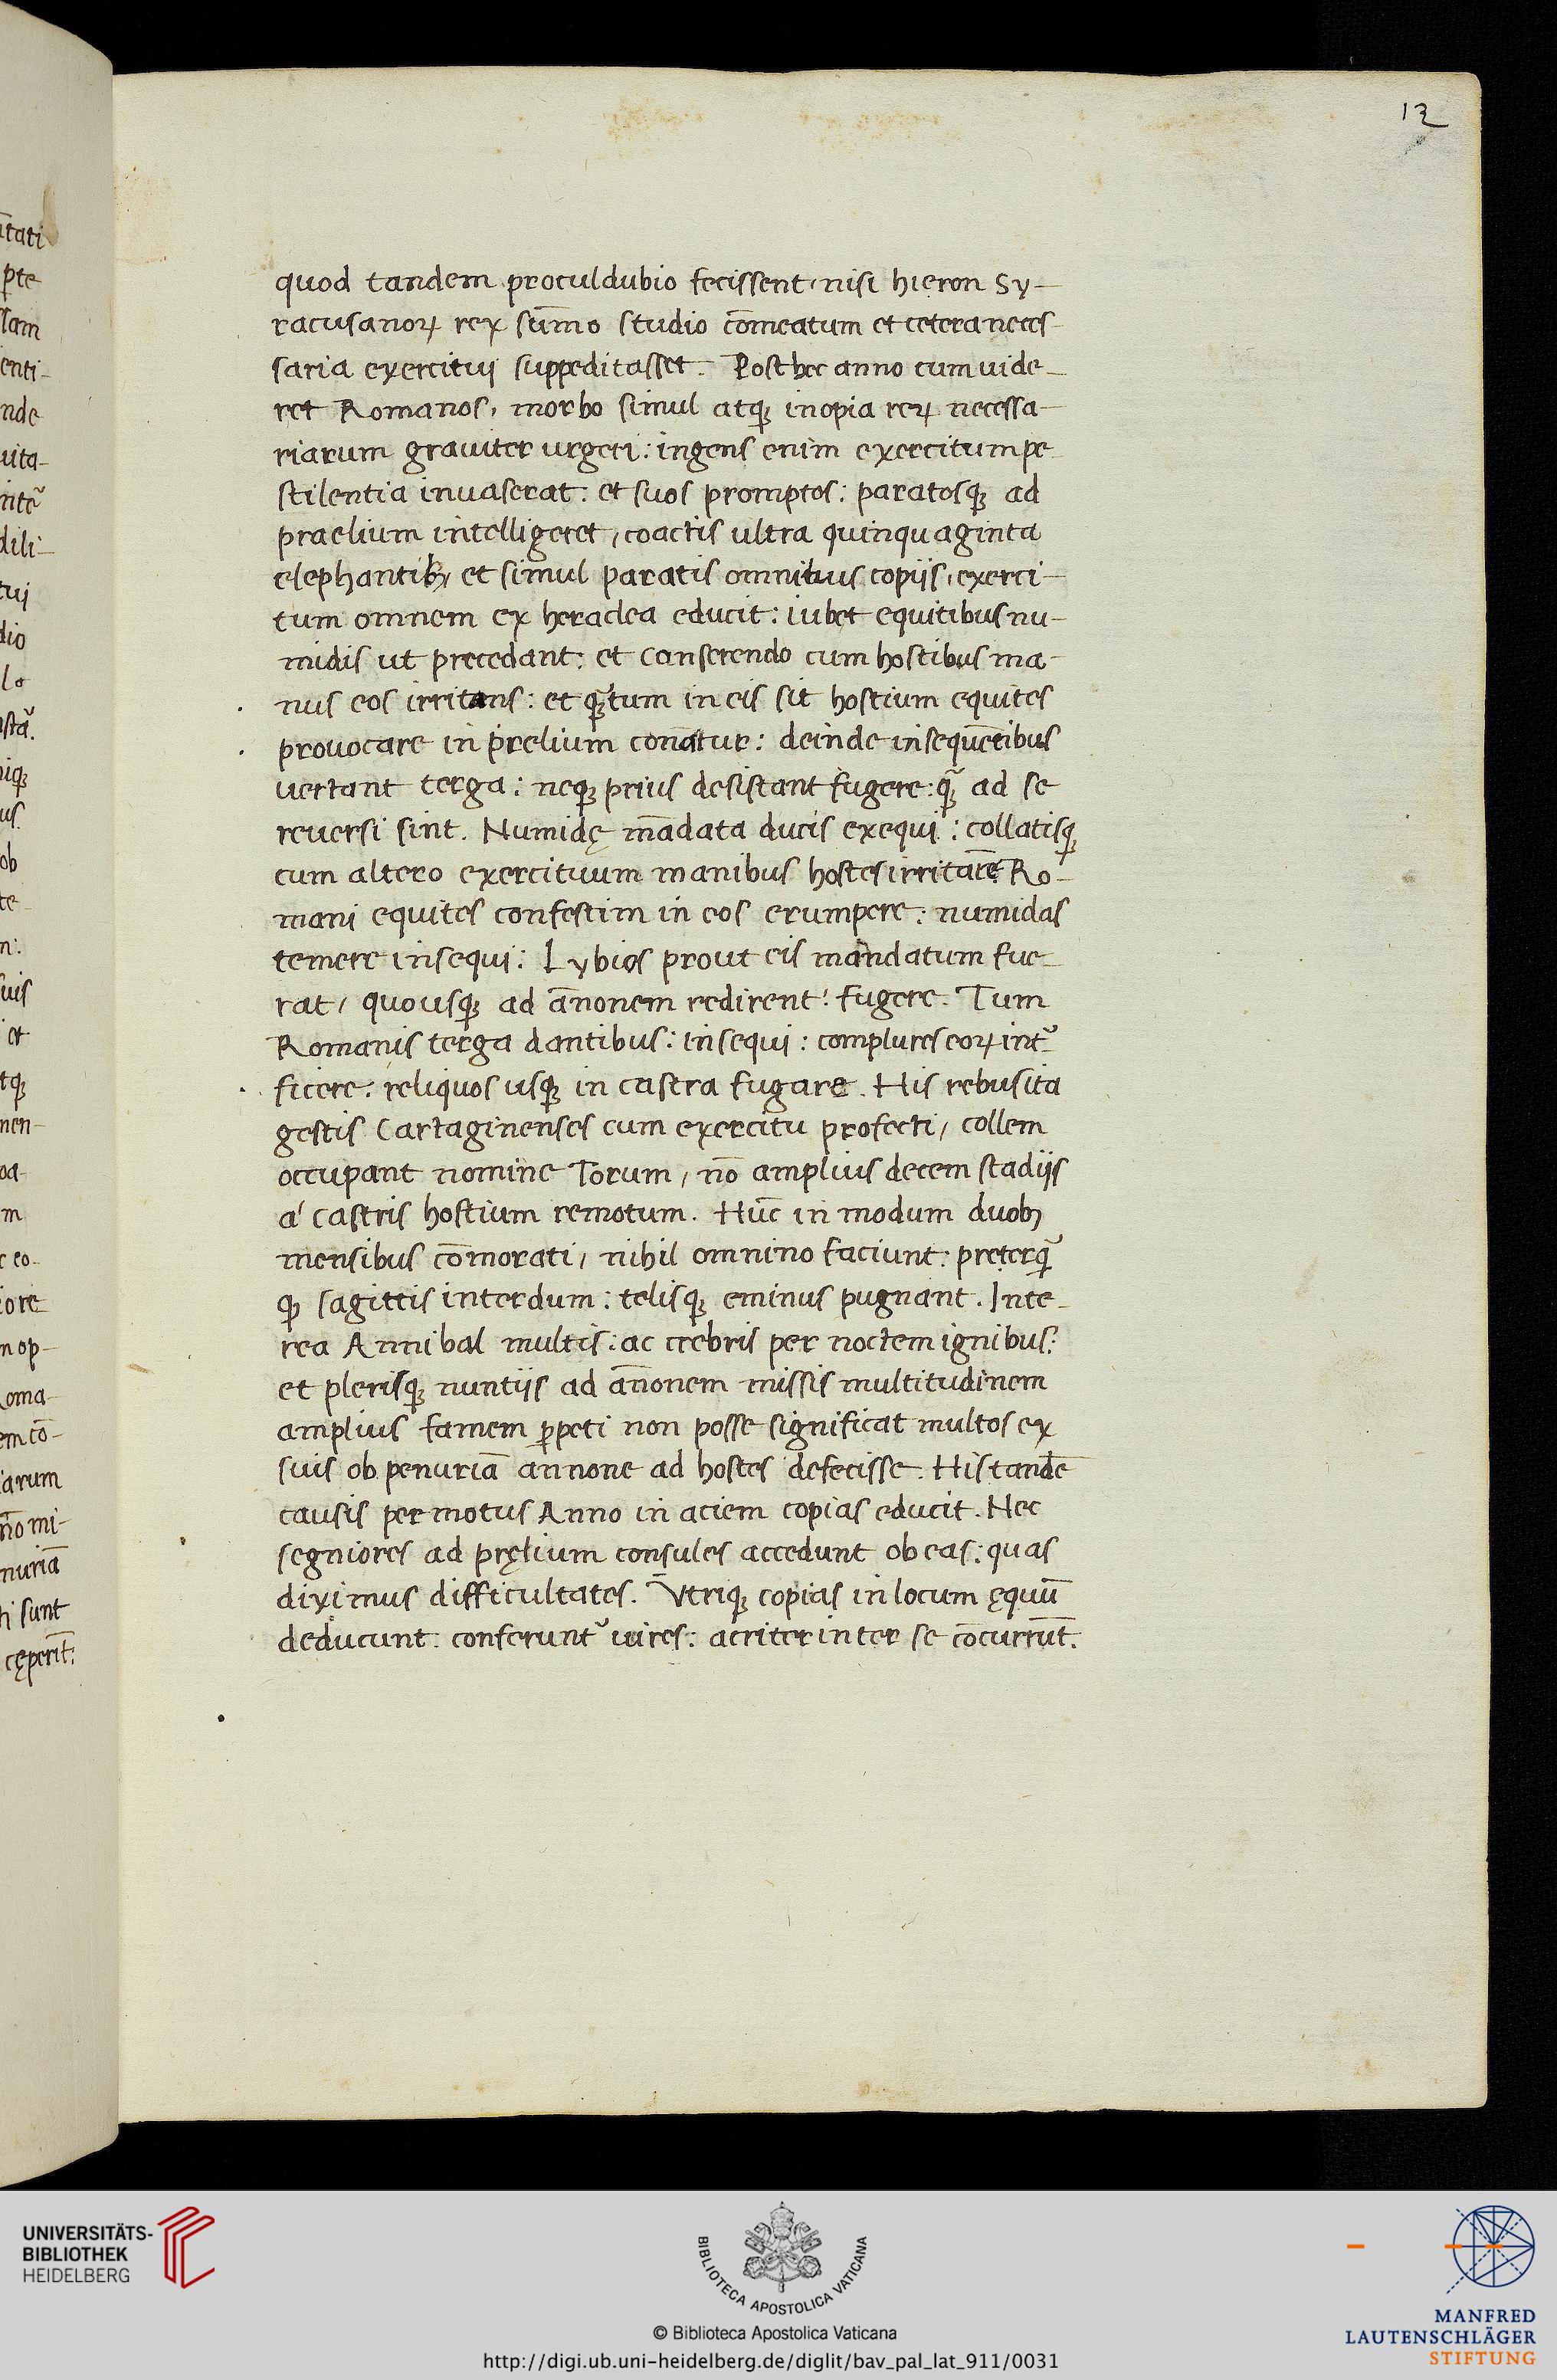 12
quod tandem proculdubio fecissent, nisi hieron Sy-
racusanoꝝ rex sūmo studio cōmeatum et cetera neces-
saria exercitui suppeditasset. Post hec anno cum uide-
ret Romanos, morbo simul atqꝫ inopia reꝝ necessa-
riarum grauiter urgeri: ingens enim exercitum pe-
stilentia inuaserat: et suos promptos: paratosqꝫ ad
praelium intelligeret, coactis ultra quinquaginta
elephantibꝫ, et simul paratis omnibus copijs, exerci-
tum omnem ex heraclea educit: iubet equitibus nu-
midis ut precedant: et conserendo cum hostibus ma-
nus eos irritans: et qꝫ̃tum in eis sit hostium equites
prouocare in prelium conãtur: deinde insequētibus
uertant terga: neqꝫ prius desistant fugere: qꝫ̃ ad se
reuersi sint. Numidę mādata ducis exequi: collatisqꝫ
cum altero exercituum manibus hostes irritare. Ro-
mani equites confestim in eos erumpere: numidas
temere insequi: Lybios prout eis mandatum fue-
rat, quousqꝫ ad ānonem redirent: fugere. Tum
Romanis terga dantibus: insequi: complures eoꝝ int̃-
ficere: reliquos usqꝫ in castra fugare. His rebus ita
gestis Cartaginenses cum exercitu profecti, collem
occupant nomine Torum, nō amplius decem stadijs
a' castris hostium remotum. Hūc in modum duobꝫ
mensibus cōmorati, nihil omnino faciunt: pręterqꝫ̃
qꝫ sagittis interdum: telisqꝫ eminus pugnant. Inte-
rea Annibal multis: ac crebris per noctem ignibus:
et plerisqꝫ nuntijs ad ānonem missis multitudinem
amplius famem ꝑpeti non posse significat multos ex
suis ob penuriā annone ad hostes defecisse. His tandē
causis permotus Anno in aciem copias educit. Nec
segniores ad pręlium consules accedunt ob eas: quas
diximus difficultates. Vtriqꝫ copias in locum ęquū
deducunt: conferunt̃ uires: acriter inter se cōcurrūt.
UNIVERSITÄTS-
BIBLIOTHEK
HEIDELBERG
BIBLIOTECA APOSTOLICA VATICANA
© Biblioteca Apostolica Vaticana
http://digi.ub.uni-heidelberg.de/diglit/bav_pal_lat_911/0031
MANFRED
LAUTENSCHLÄGER
STIFTUNG